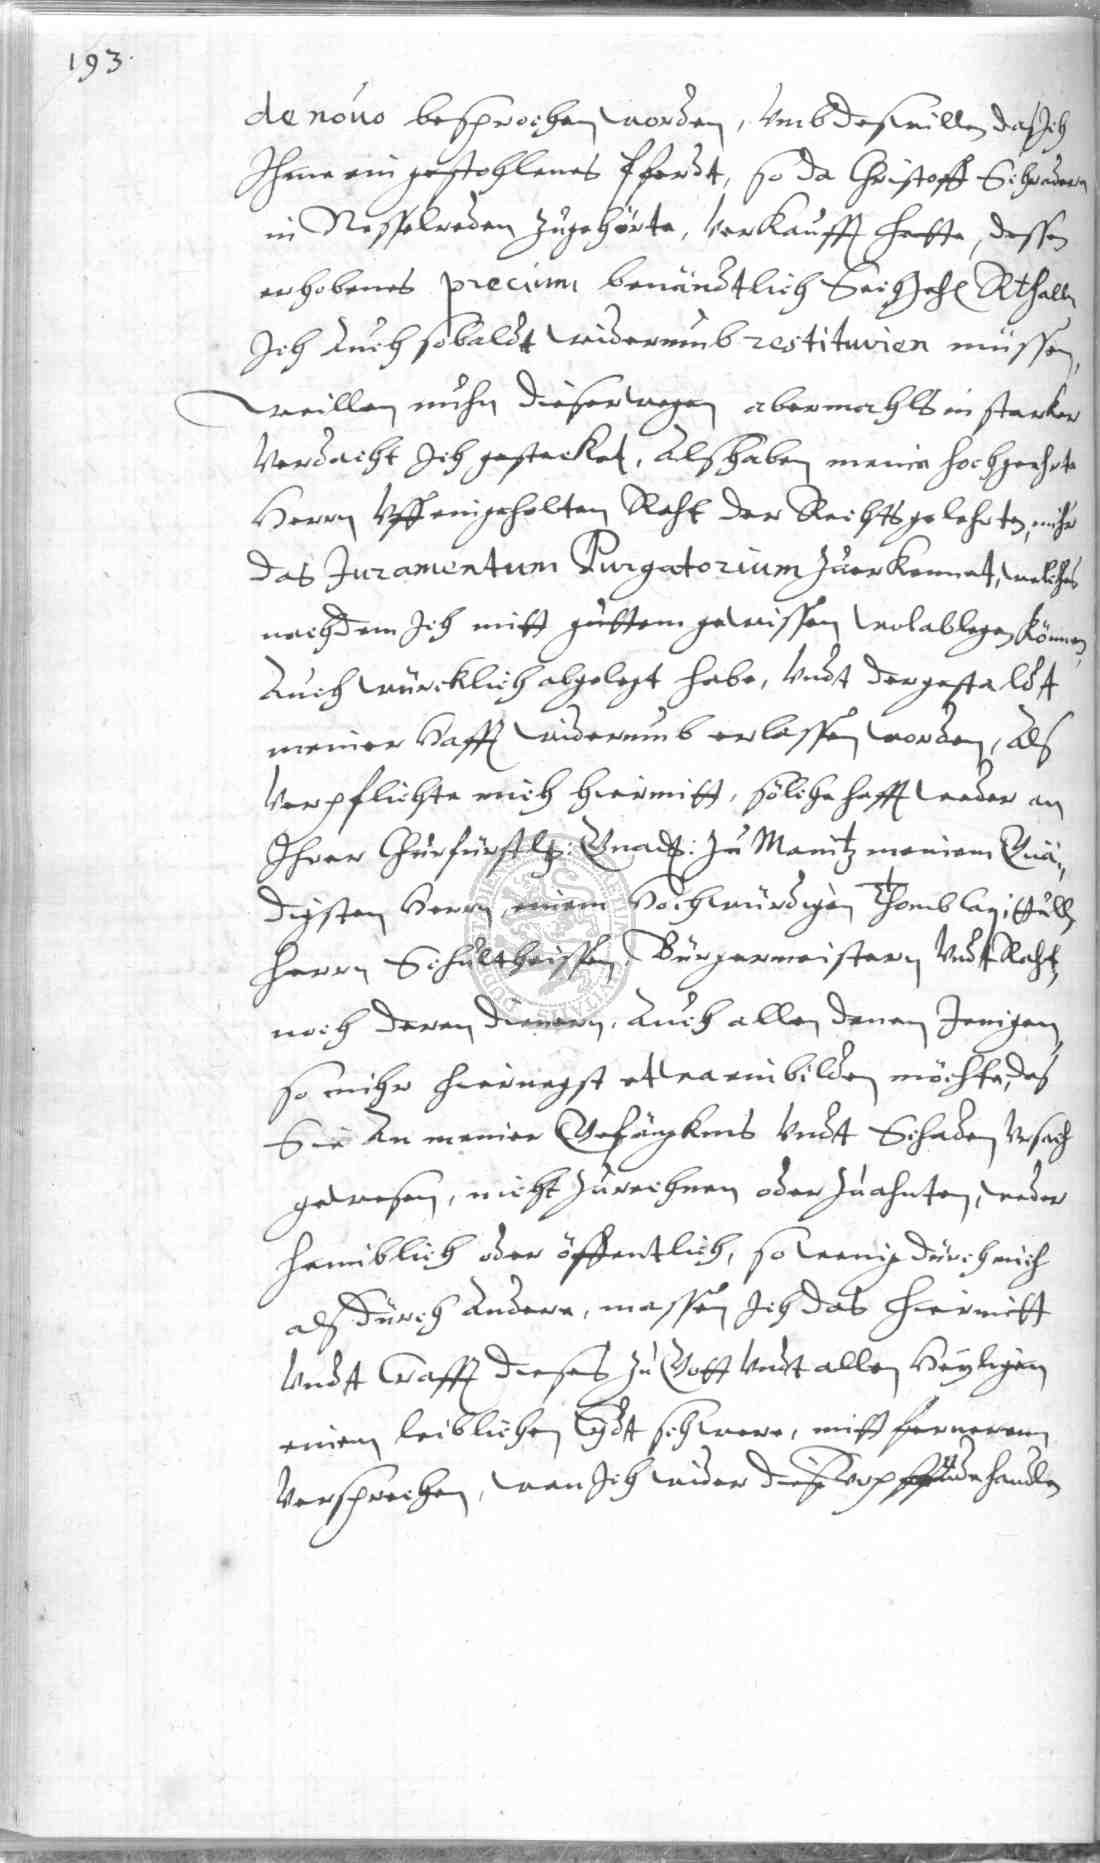 193.
de nóuo besprochen worden, Vmb deswillen das Ich
Ihme ein gestohlenes Pferdt, so da Christoff Schradern
in Nesselreden zugehörte, Verkaufft hatte, dessen
erhobenes precium benändtlich Sechzehn Rthall
Ich Auch sobaldt widerumb restituiren müssen,
weillen nuhn dieserwegen abermahls in starker
Verdacht Ich gestecket, Alß haben meine hochgeehrte
Herrn Vff eingeholten Raht der Rechtsgelehrten, mihr
das Juramentum Purgatorium zuerkennet, welches
nachdem Ich mitt guttem gewissen wol ablegen können,
Auch würcklich abgelegt habe, Vndt dergestaldt
meiner Hafft widerumb erlassen worden, Alß
Verpflichte mich hiermitt, solche hafft weder an
Ihrer Churfürstlh: Gnadh: zu Maintz meinem Gnä¬
digsten Herrn, einem Hochwürdigen Thomb Capittull
Herrn Schultheissen, Bürgermeistern Vndt Raht,
noch deren dienern, Auch allen denen Jenigen,
so mihr hiernegst etwa einbilden möchte, das
Sie An meiner Gefängknis Vndt Schaden Vrsach
gewesen, nicht zurechnen oder zuahnten, weder
heimblich oder öffentlich, so wenig durch mich
alß durch Andere, massen Ich das hiermitt
Vndt Crafft dieses zu Gott Vndt allen Heyligen
einen leiblichen Eydt schwere, mitt fernerem
Versprechen, wan Ich wider diese handlen